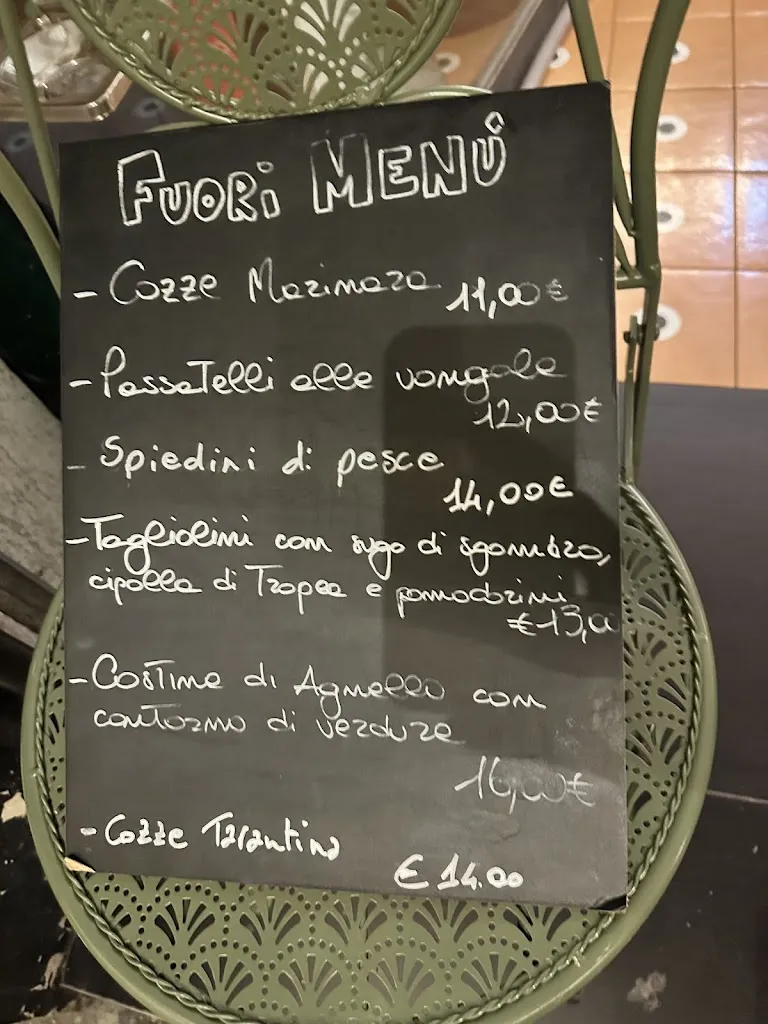 FUORI MENÙ
- Cozze Marinara 11,00€
- Passatelli alle vongole
12,00€
- Spiedini di pesce
14,00€
- Tagliolini con sugo di sgombro,
cipolla di Tropea e pomodorini
€ 13,00
- Costine di Agnello con
contorno di verdure
16,00€
- Cozze Tarantina
€ 14.00